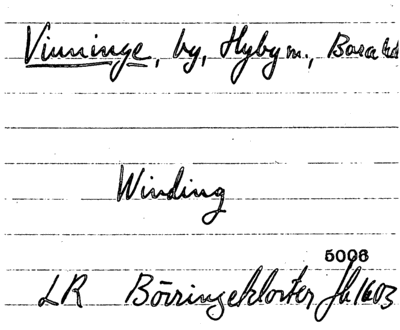 Vinninge, by, Hyby sn., Bara hd
Winding
5006
LR Börringekloster Jb 1603